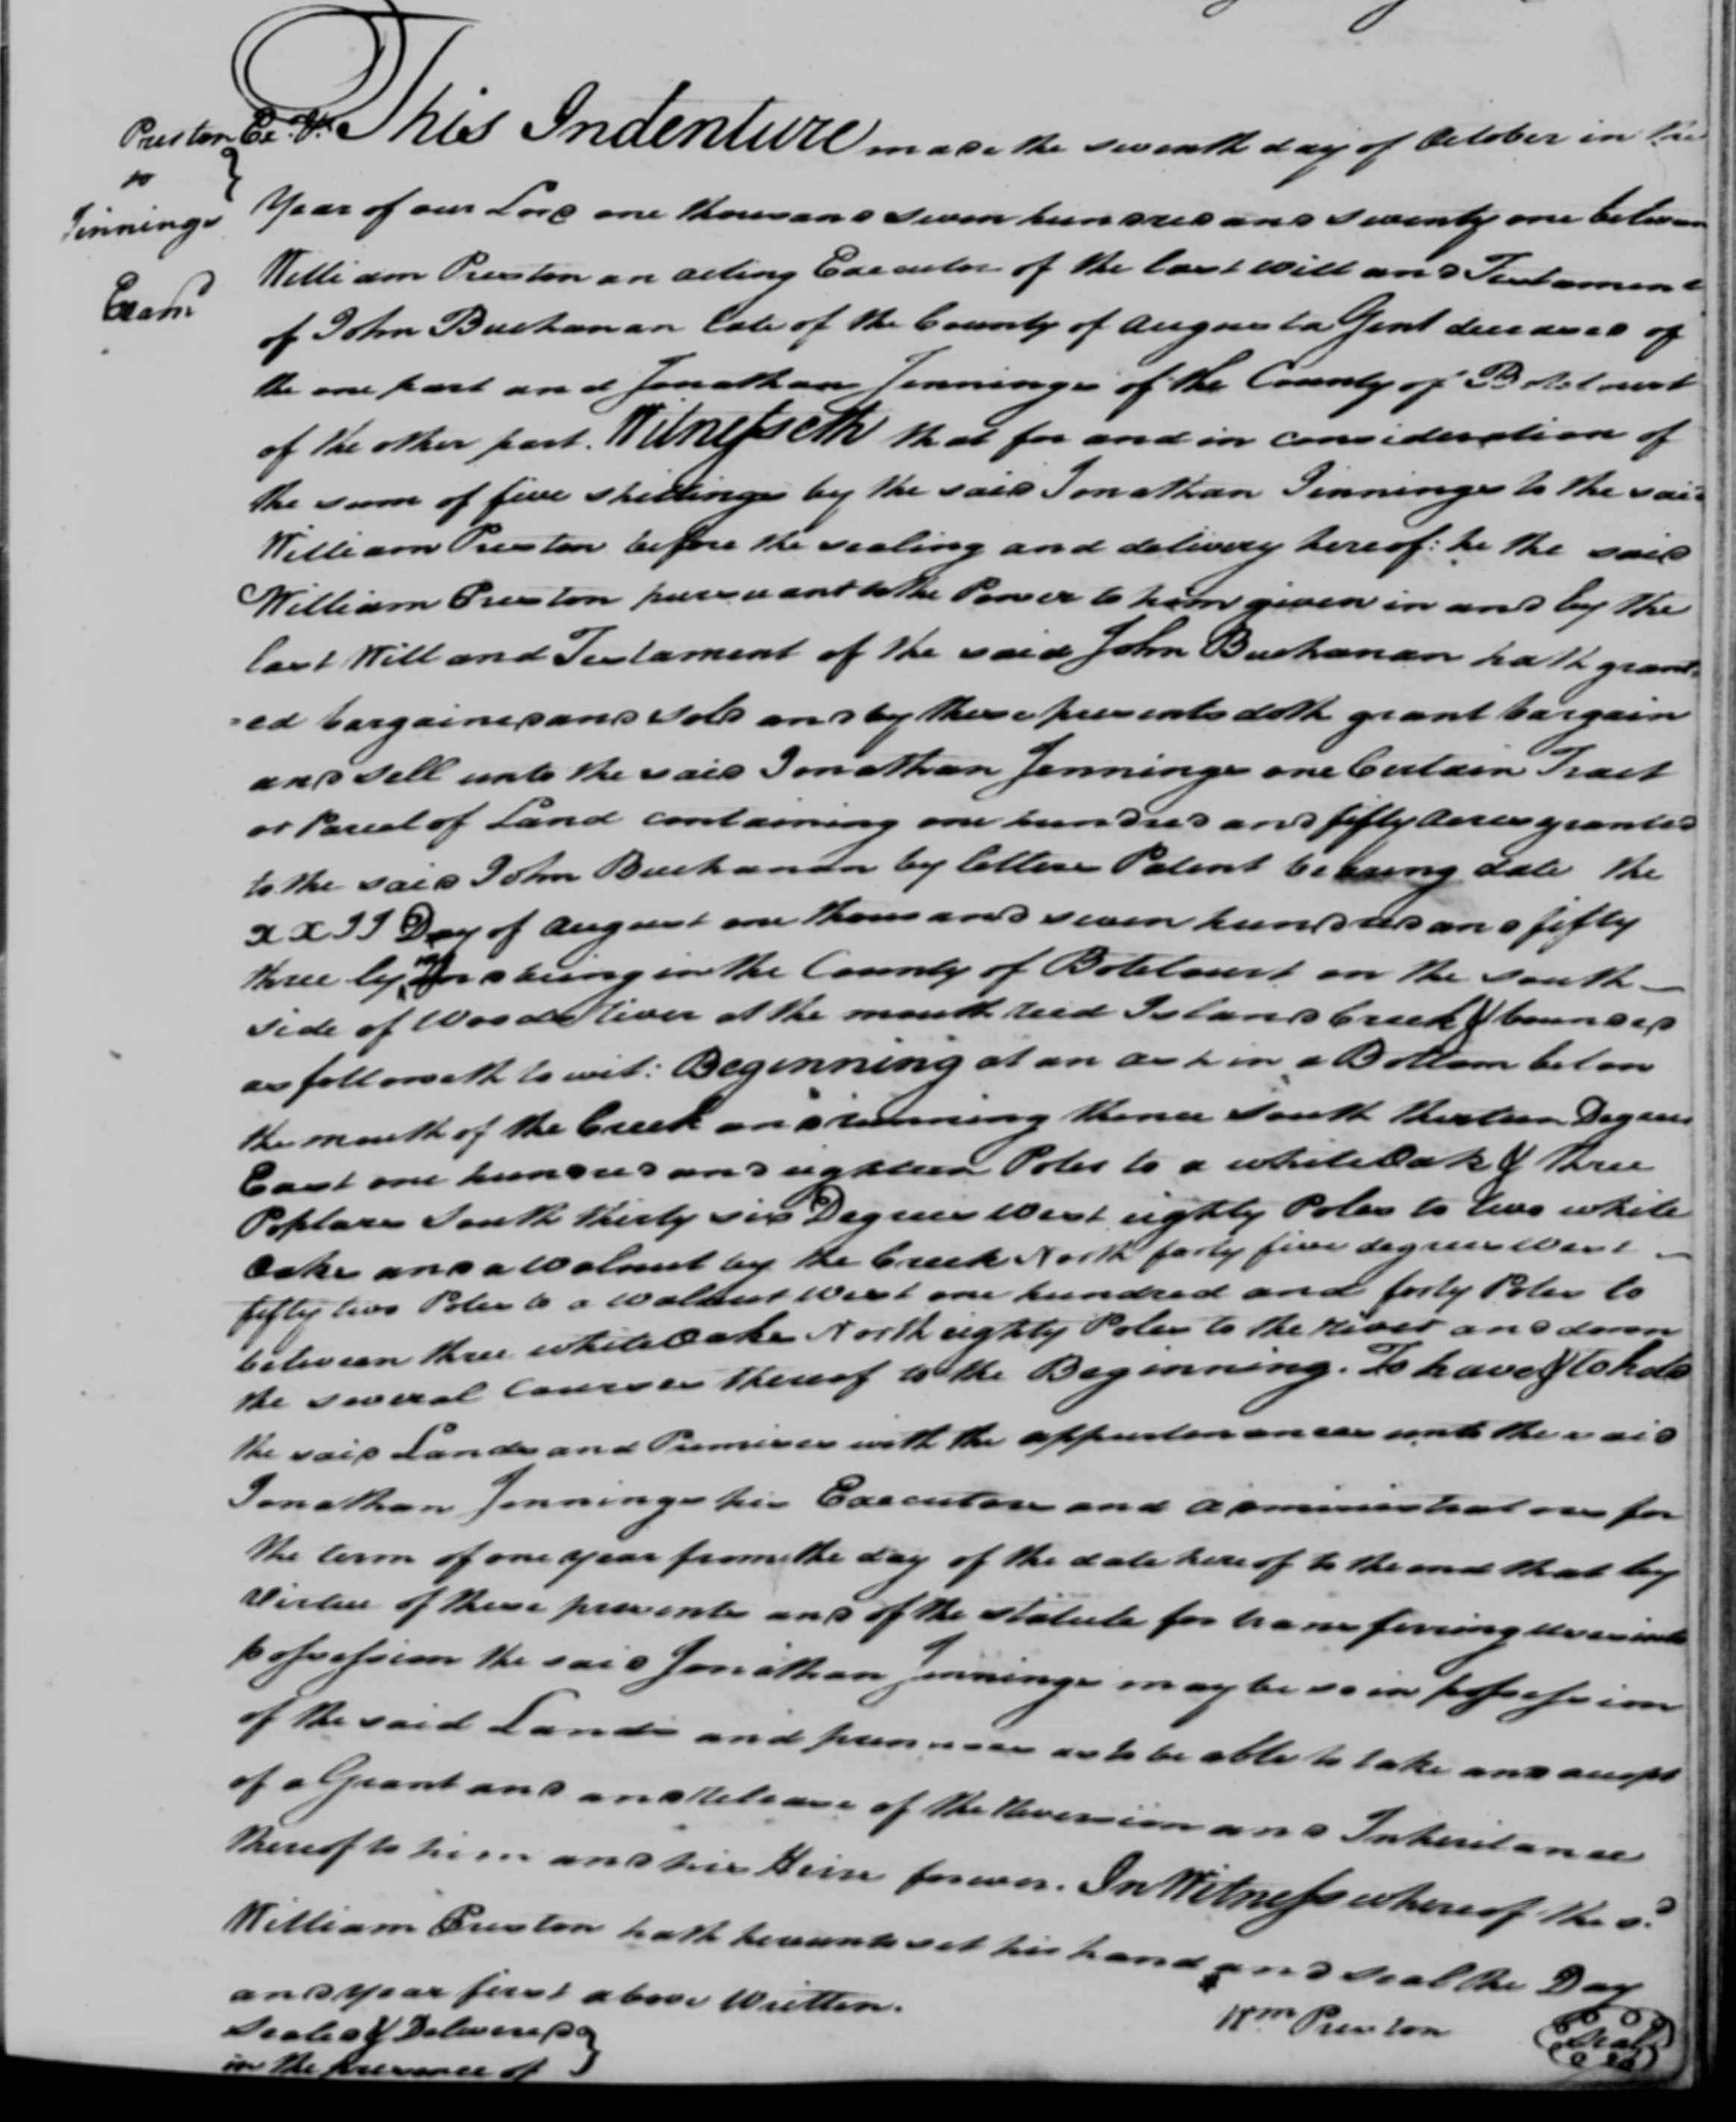 Preston Ex.r
to }
Jennings
Exam.d
This Indenture made the seventh day of October in the
Year of our Lord one thousand seven hundred and seventy one between
William Preston an acting Executor of the last will and Testament
of John Buchanan late of the County of Augusta Gent deceased of
the one part and Jonathan Jennings of the County of Botetourt
of the other part. Witnesseth that for and in consideration of
the sum of five shillings by the said Jonathan Jennings to the said
William Preston before the sealing and delivery hereof: he the said
William Preston pursuant to the Power to him given in and by the
last Will and Testament of the said John Buchanan hath grant-
=ed bargained and sold and by these presents doth grant bargain
and sell unto the said Jonathan Jennings one Certain Tract
or Parcel of Land containing one hundred and fifty Acres granted
to the said John Buchanan by letters Patent bearing date the
XXII Day of August one thousand seven hundred and fifty
three lying and being in the County of Botetourt on the South
side of Woods River at the mouth reed Island Creek & bounded
as followeth to wit: Beginning at an ash in a Bottom below
the mouth of the Creek and running thence South thirteen Degrees
East one hundred and eighteen Poles to a white Oak & three
Poplars South thirty six Degrees West eighty Poles to two white
Oaks and a Walnut by the Creek North forty five degrees West
fifty two Poles to a Walnut West one hundred and forty Poles to
between three white Oaks North eighty Poles to the river and down
the several Courses thereof to the Beginning. To have & to hold
the said Lands and Premises with the appurtenances unto the said
Jonathan Jennings his Executors and Administrators for
the term of one year from the day of the date hereof to the end that by
Virtue of these presents and of the statute for transferring uses into
possession the said Jonathan Jennings may be so in possession
of the said Lands and premises as to be able to take and accept
of a Grant and and Release of the Reversion and Inheritance
thereof to him and his Heirs forever. In Witness whereof the s.d
William Preston hath hereunto set his hand and seal the Day
and year first above Written.
Sealed & Delivered }
in the presence of
Wm Preston
Seal